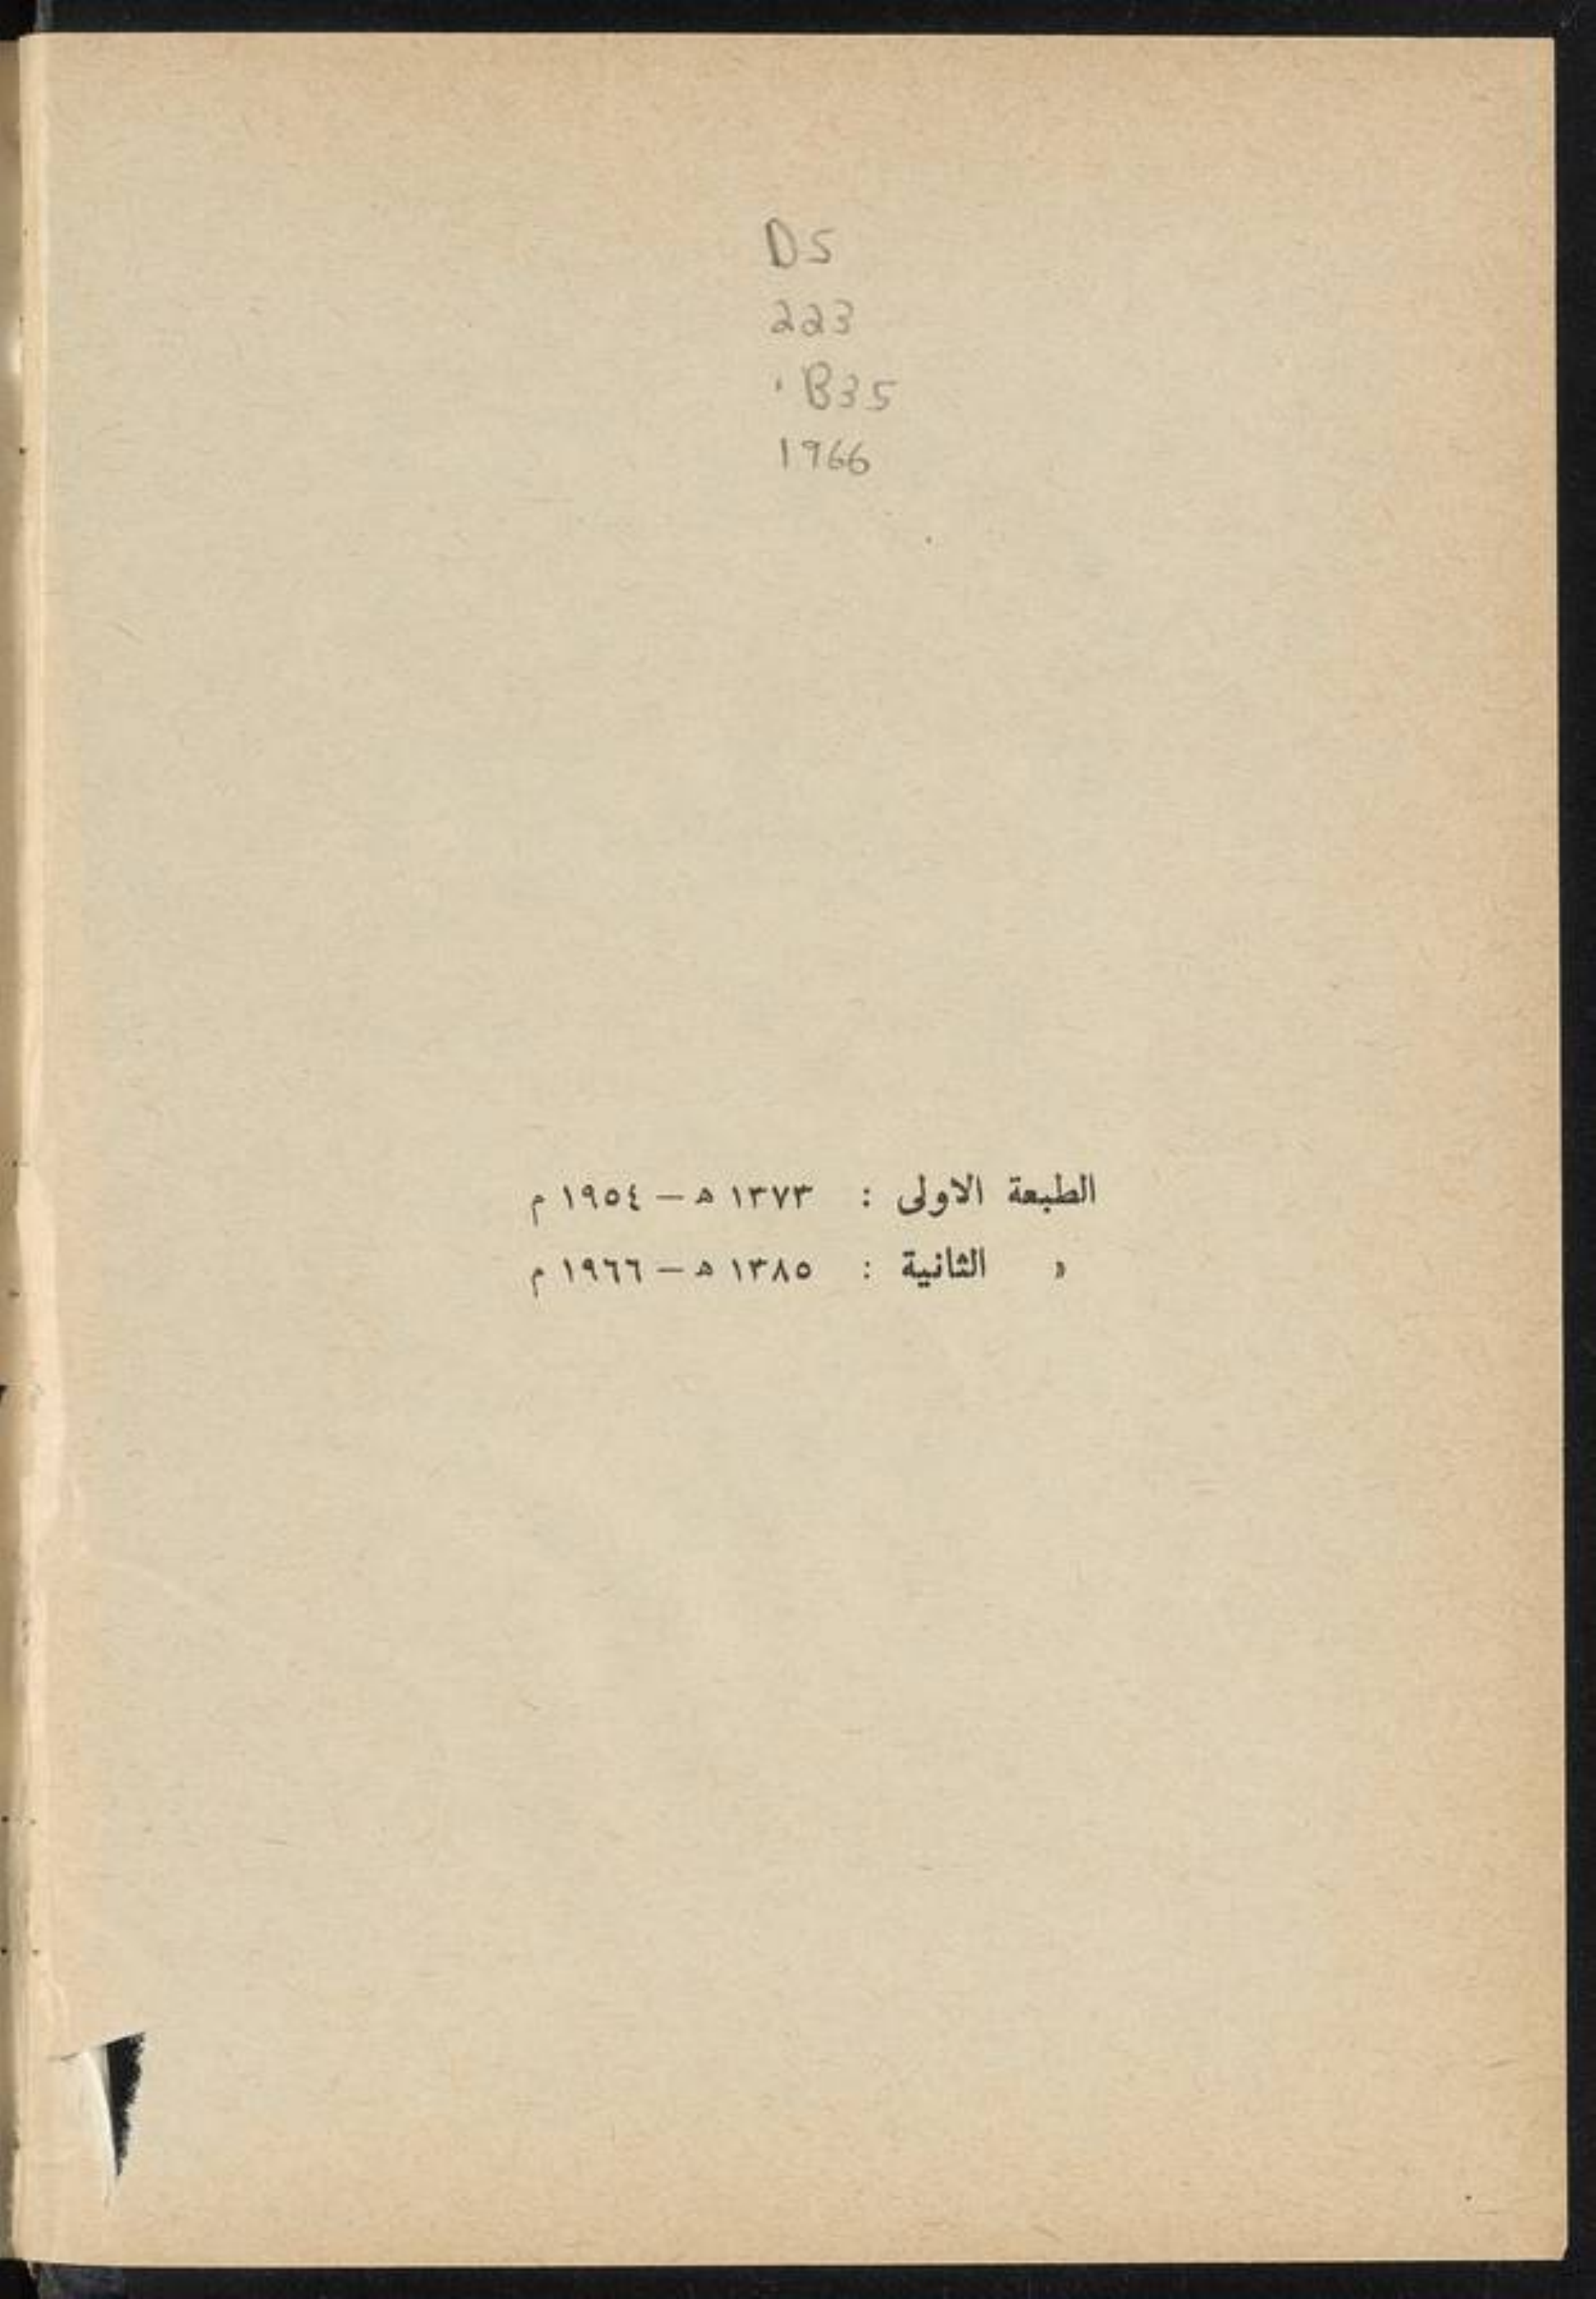 DS
223
.B35
1966
الطبعة الاولى : ١٣٧٣ ه — ١٩٥٤ م
« الثانية : ١٣٨٥ ه — ١٩٦٦ م